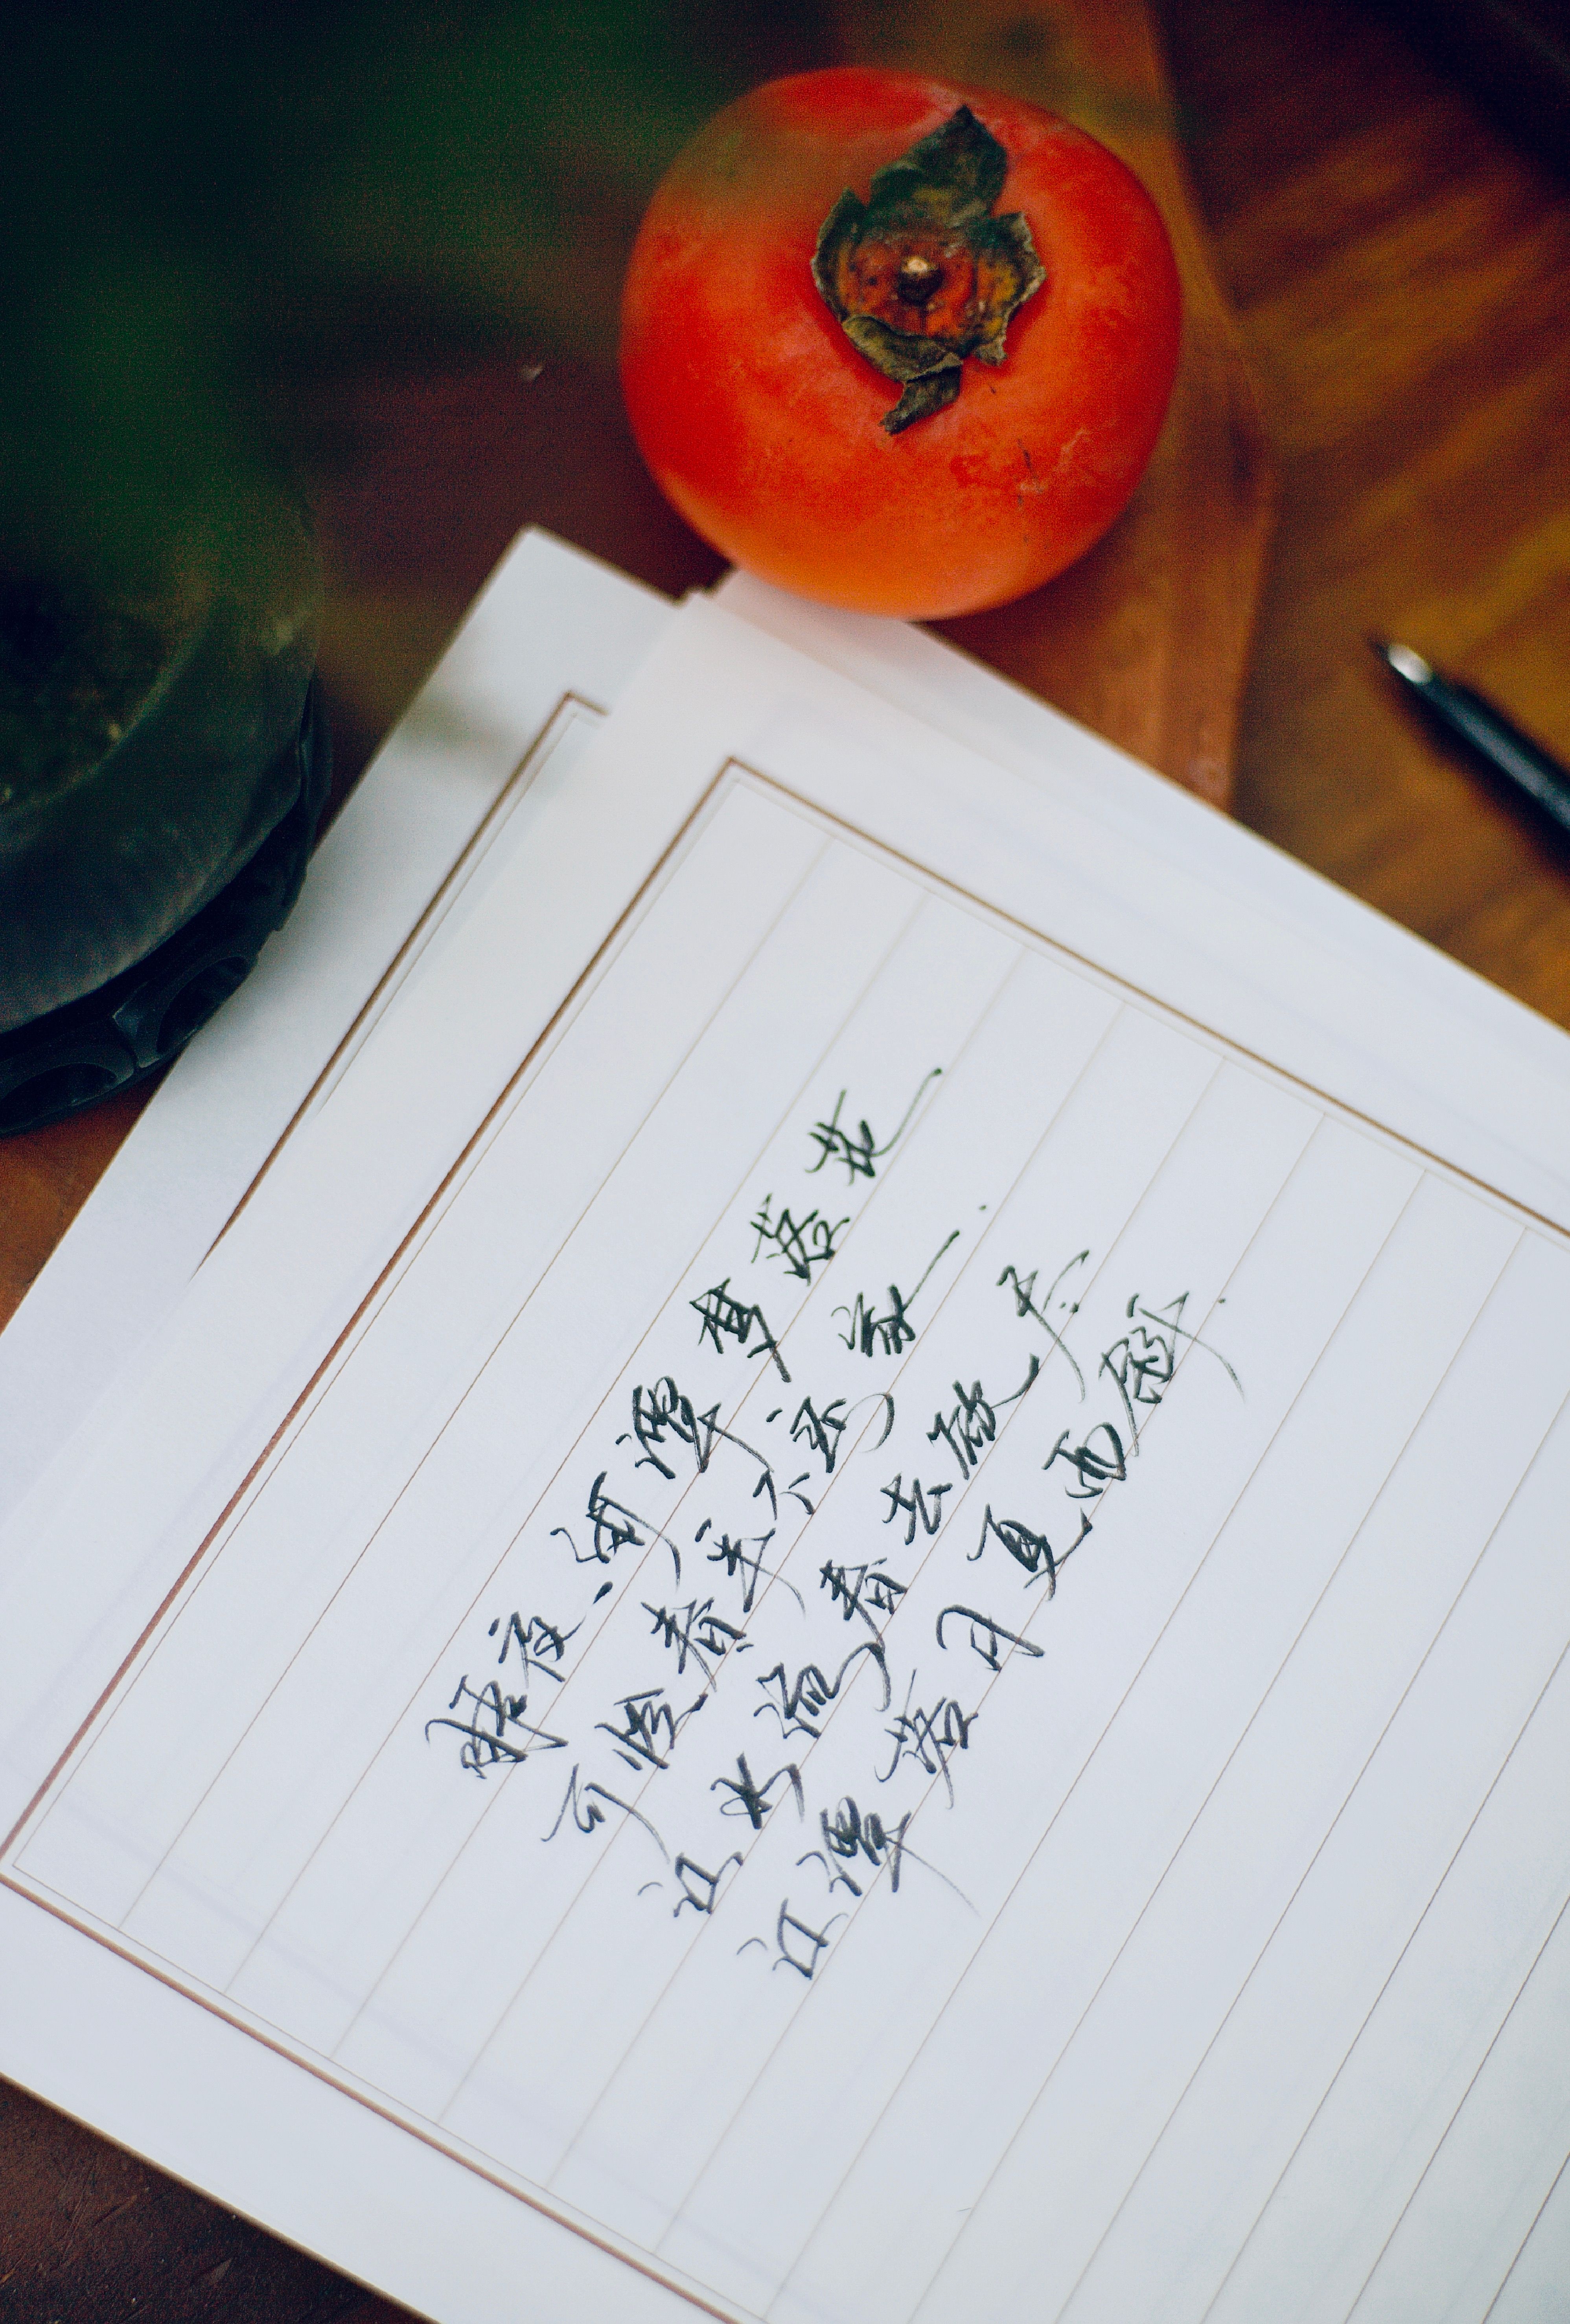 昨夜、闲潭梦落花
可怜春半不还家.
江水流春去欲尽
江潭落月复西斜.